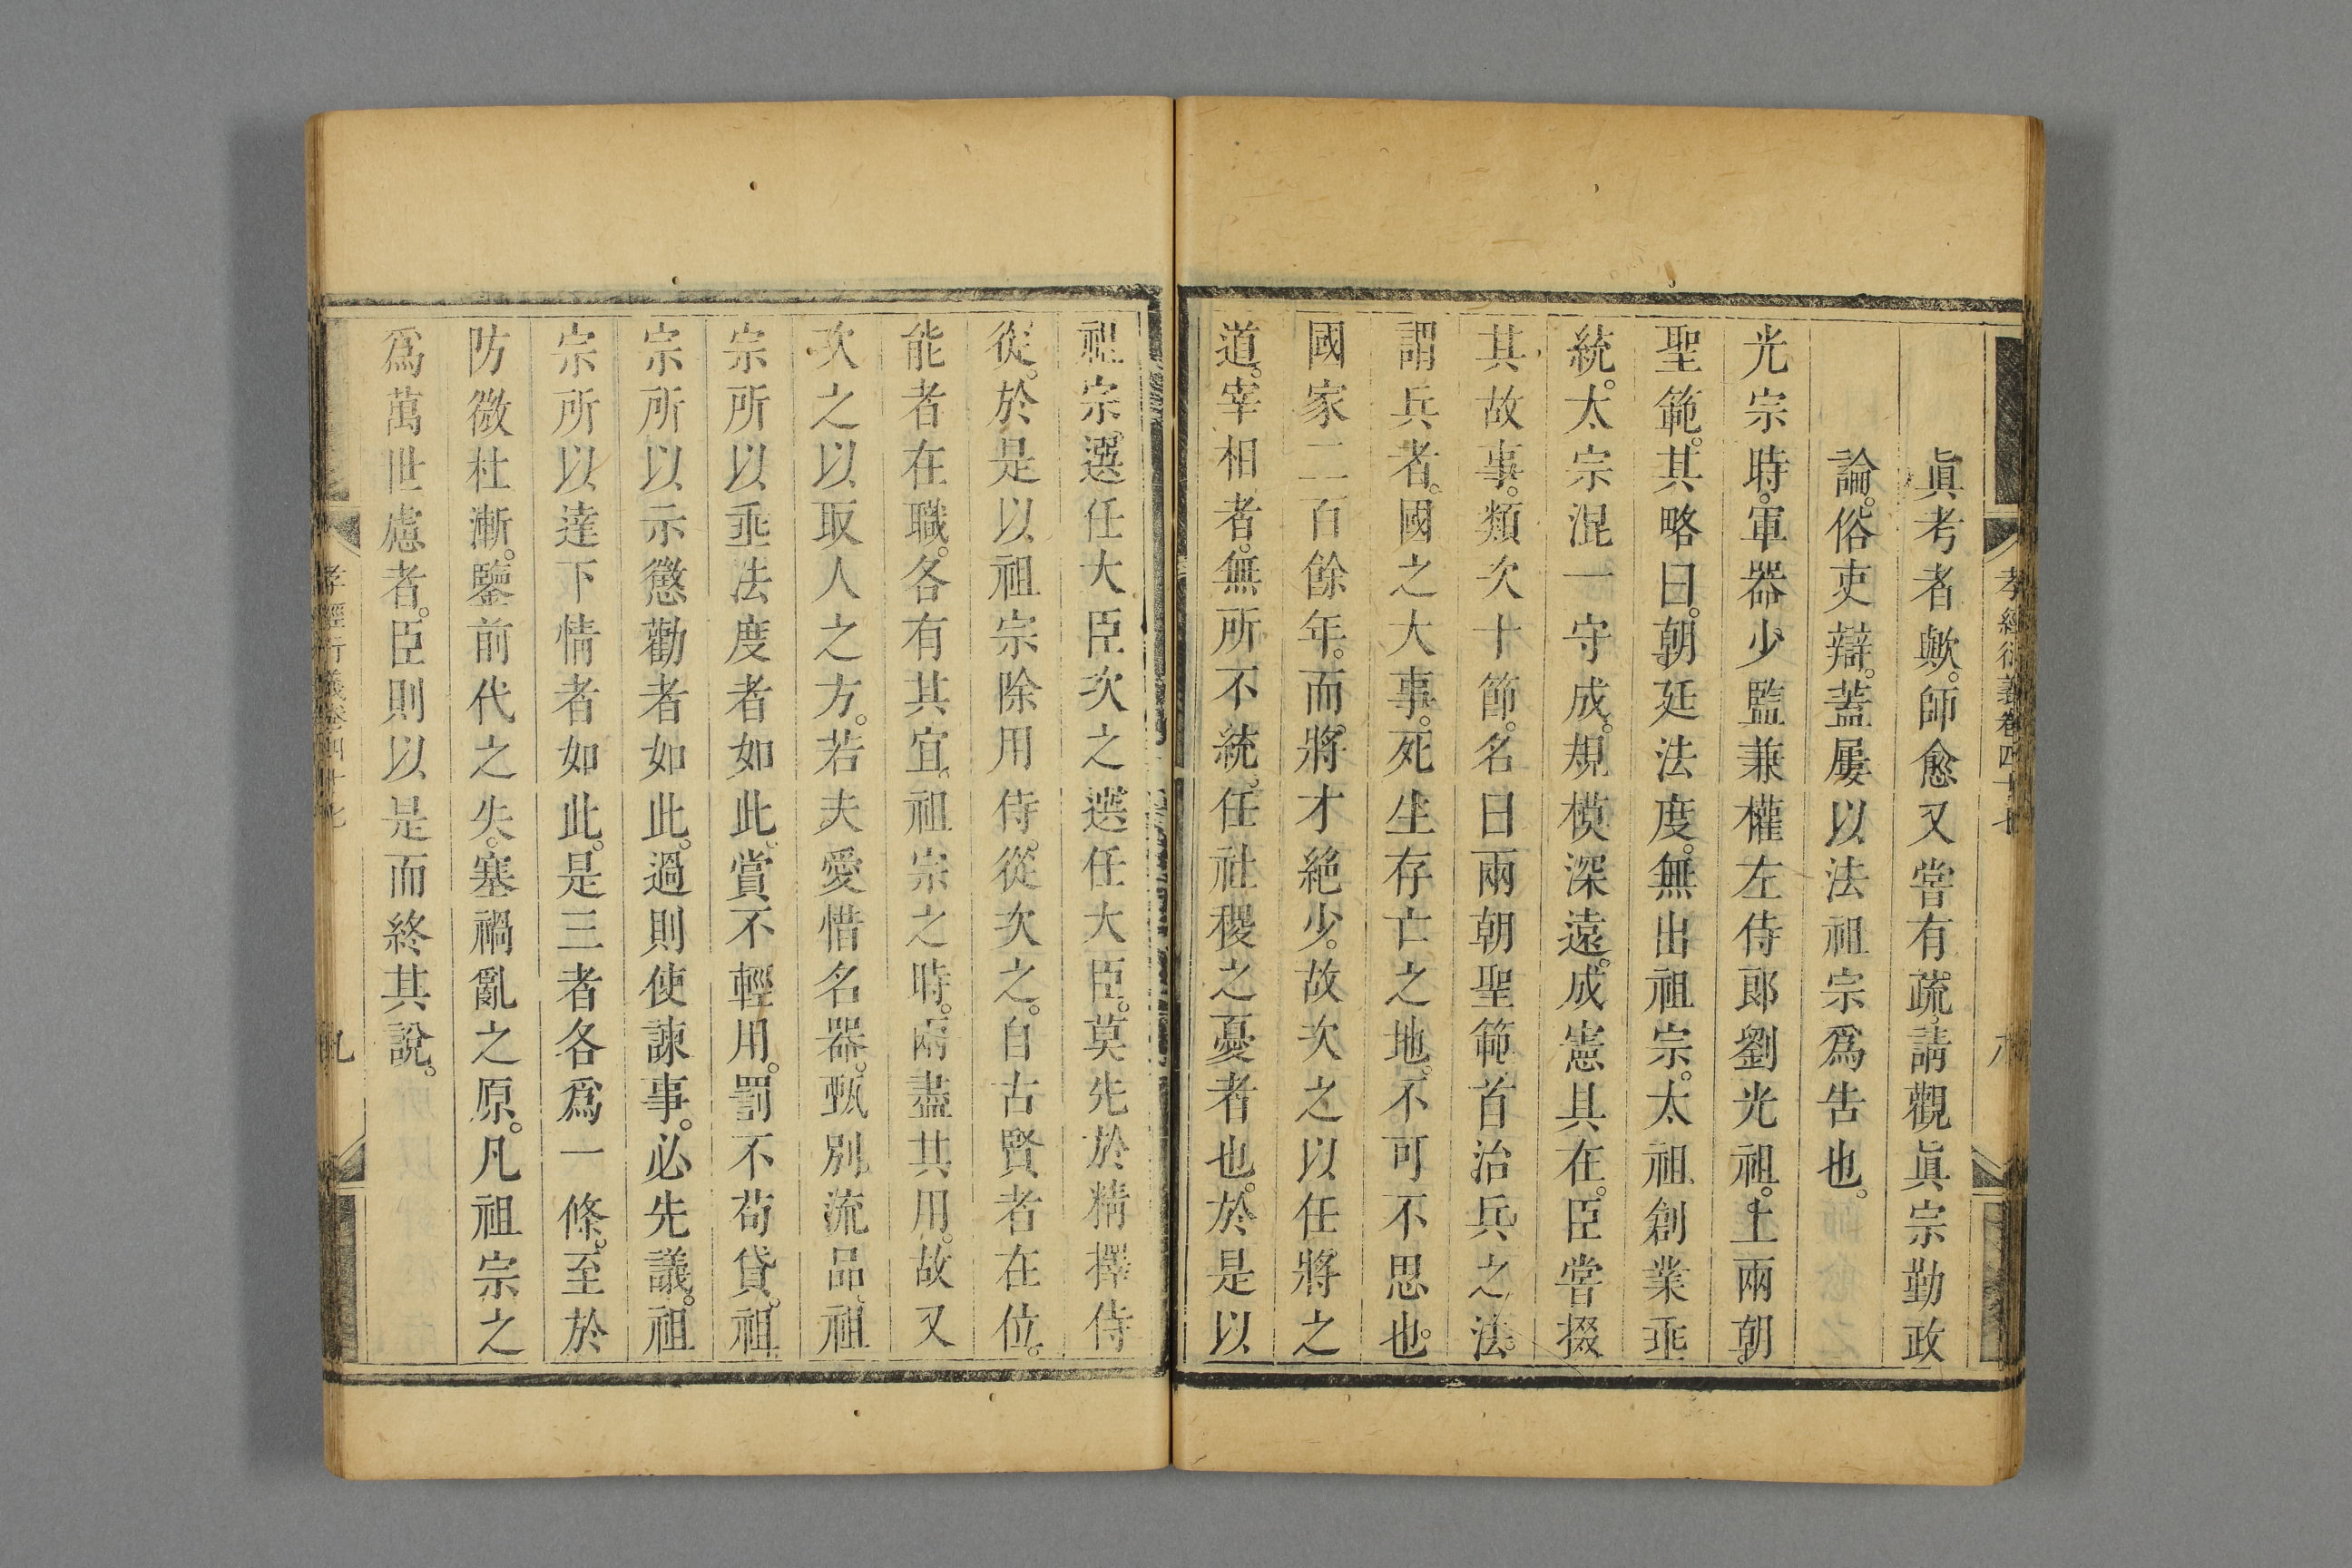 孝經衍義卷四十七
眞考者歟。師愈又嘗有疏。請觀眞宗勤政
論。俗吏辯。蓋屢以法祖宗爲告也。
光宗時。軍器少監兼權左侍郎劉光祖。上兩朝
聖範。其略曰。朝廷法度。無出祖宗。太祖創業垂
統。太宗混一守成。規模深遠。成憲具在。臣嘗掇
其故事。類次十節。名曰兩朝聖範。首治兵之法。
謂兵者。國之大事。死生存亡之地。不可不思也。
國家二百餘年。而將才絶少。故次之以任將之
道。宰相者。無所不統。任社稷之憂者也。於是以
祖宗選任大臣次之。選任大臣。莫先於精擇侍
從。於是以祖宗除用侍從次之。自古賢者在位。
能者在職。各有其宜。祖宗之時。兩盡其用。故又
次之以取人之方。若夫愛惜名器。甄別流品。祖
宗所以垂法度者如此。賞不輕用。罰不苟貸。祖
宗所以示懲勸者如此。過則使諫事。必先議。祖
宗所以達下情者如此。是三者各爲一條。至於
防微杜漸。鑒前代之失。塞禍亂之原。凡祖宗之
爲萬世慮者。臣則以是而終其說。
孝經衍義卷四十七
九